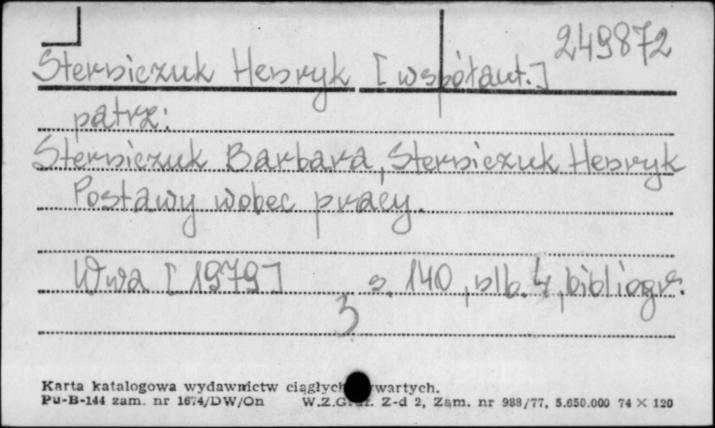 249872
Sterniczuk Henryk [współaut.]
patrz:
Sterniczuk Barbara, Sterniczuk Henryk
Postawy wobec pracy.
Wwa [1979] s. 140, nlb. 4, bibliogr.
3
Karta katalogowa wydawnictw ciągłych wartych.
Pu-B-144 zam. nr 1674/DW/On W.Z.Graf. Z-d 2, Zam. nr 988/77, 5.650.000 74 × 120